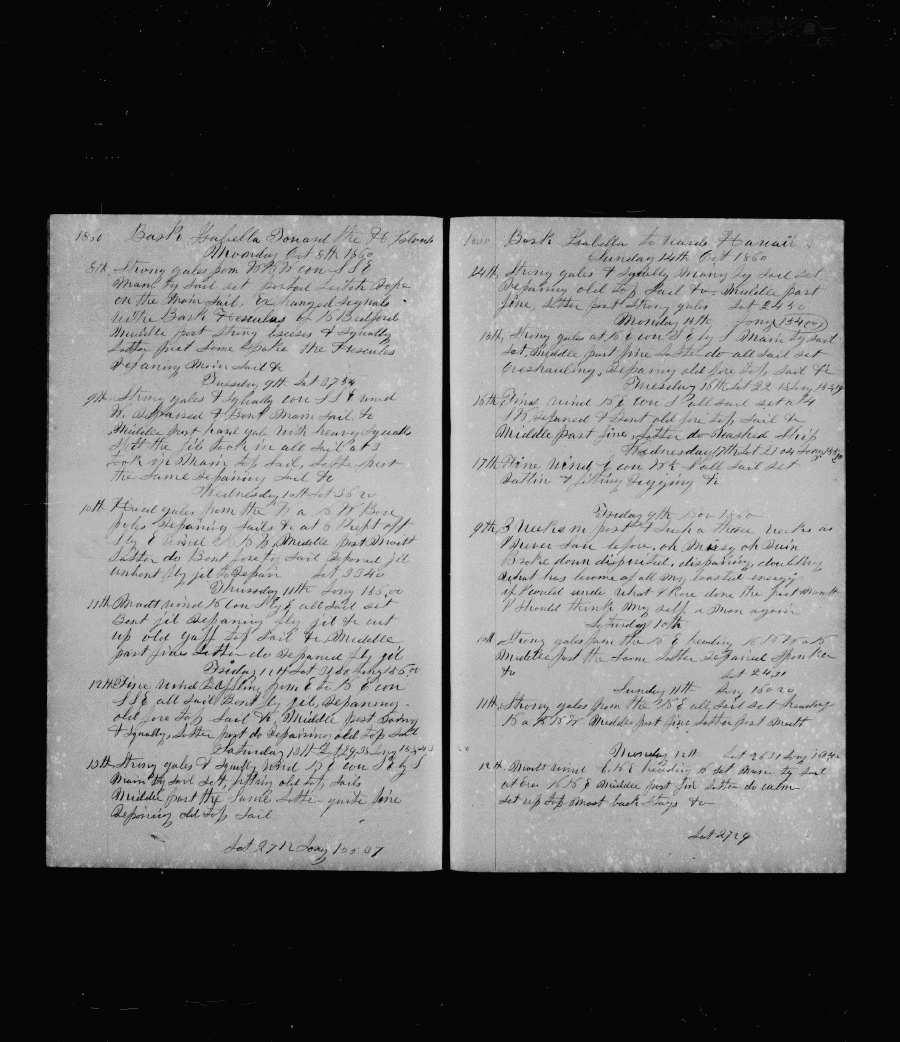 1860 Bark Isabella Toward the H Islands
Monday Oct 8th 1860
8th Strong gales from con S S E
Main ty Sail set Scotch Rope
on the Main Sail, Exchanged Signals
with Bark Hercules of N Bedford
Middle part Strong breeses & Squally
Latter part Same Spoke the Hercules
Repairing Main Sail &c
Tuesday 9th Lat 37
9th Strong gales & Squally con S S E wind
W, Repaired & Bent Main Sail &c
Middle part hard gale with heavy Squalls
Split the jib took in all Sail at 8
took in Main Top Sail, Latter part
the Same Repairing Sail &c
Wednesday 10th Lat 36 20
10th Hard gales from the W a N W Bare
poles Repairing Sails &c at 6 kept off
S by E Wind Middle part Modtt
Latter do Bent fore ty Sail Repaired jib
unbent fly jib to Repair Lat 33 40
Thursday 11th Long 156,00
11th Modtt wind N con S by E all Sail set
Bent jib Repairing fly jib &c cut
up old gaff Top Sail &c Middle
part fine Latter do Repaired fly jib
Friday 12th Lat 31 Long 155,
12th Fine wind Baffling from E to N E con
S S E all Sail Bent fly jib, Repairing
old fore Top Sail &c, Middle part
& Squally, Latter part do Repairing old Top Sail
Saturday 13th Lat 29, Long 155,45
13th Strong gales & Squally wind N E con S E by S
Main ty Sail set, fitting old Top Sails
Middle part the Same Latter quite fine
Repairing old Top Sail
Lat 27 12 Long 155 37
1860 Bark Isabella towards Hanaii
Sunday 14th Oct 1860
24th Strong gales & Squally Main ty Sail set
Repairing old Top Sail &c Middle part
fine, Latter part Strong gales Lat 24 30
Monday 15th Long 154 00
15th Strong gales at N E con S E by S Main ty Sail
Set, Middle part fine Latter do all Sail set
Overhauling, Repairing old fore Top Sail &c
Tuesday 16th Lat 22 Long
16th Fine, wind N E con S all Sail set at 4
P M Repaired & Bent old fore Top Sail &c
Middle part fine, Latter do Washed Ship
Wednesday 17th Lat 21 04 Long
17th Fine Wind E con all Sail set
Rattlin & fitting rigging &c
Friday 9th Nov 1860
9th 3 Weeks in port & Such a three weeks as
I never Saw before, oh Missry oh Ruin
Broke down dispirited, dispairing, doubting
What has become of all my boasted energy
if I could undo what I have done the past Month
I Should think My self a Man again
Saturday 10th
10th Strong gales from the N E heading
Middle part the Same Latter Repaired Spanker
&c Lat 24,30
Sunday 11th Long 160 20
11th Strong gales from the N E all Sail set heading
Middle part fine Latter part Modtt
Monday 12th Lat 26 31 Long
12th Modtt wind heading N set Main ty Sail
Middle part fine Latter do calm
Set up Top Mast back Stays &c
Lat 27 29